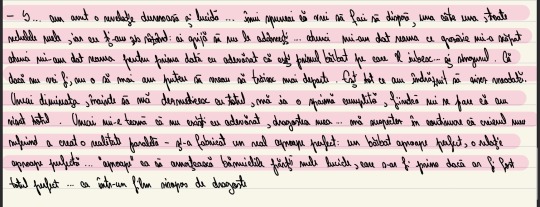 – S... am avut o revelație dureroasă și lucidă ... îmi spuneai că vrei să faci să dispară, una câte una, toate
nebuliile mele, iar eu ți-am zis râzând: ai grijă să nu le adormi ... atunci mi-am dat seama ce grozăvie mi-a scăpat
atunci mi-am dat seama pentru prima dată cu adevărat că ești primul bărbat pe care îl iubesc... și singurul. Că
dacă nu vei fi, nu o să mai am putere să mai trăiesc mai departe. Cât de ce am îndrăznit să aired vreodată.
Uneori dimineața, înainte să mă dezmeticesc cu totul, mă ia o spaimă cumplită, fiindcă mi se pare că am
visat totul. Uneori mi-e teamă că nu exiști cu adevărat, dragostea mea ... mă suspectez în continuare că creierul meu
suferind a creat o realitate paralelă – și-a fabricat un real aproape perfect: un bărbat aproape perfect, o relație
aproape perfectă ... "aproape" ca să amuțească bănuielile părții mele lucide, care s-ar fi prins dacă ar fi fost
totul perfect ... ca într-un film siropos de dragoste